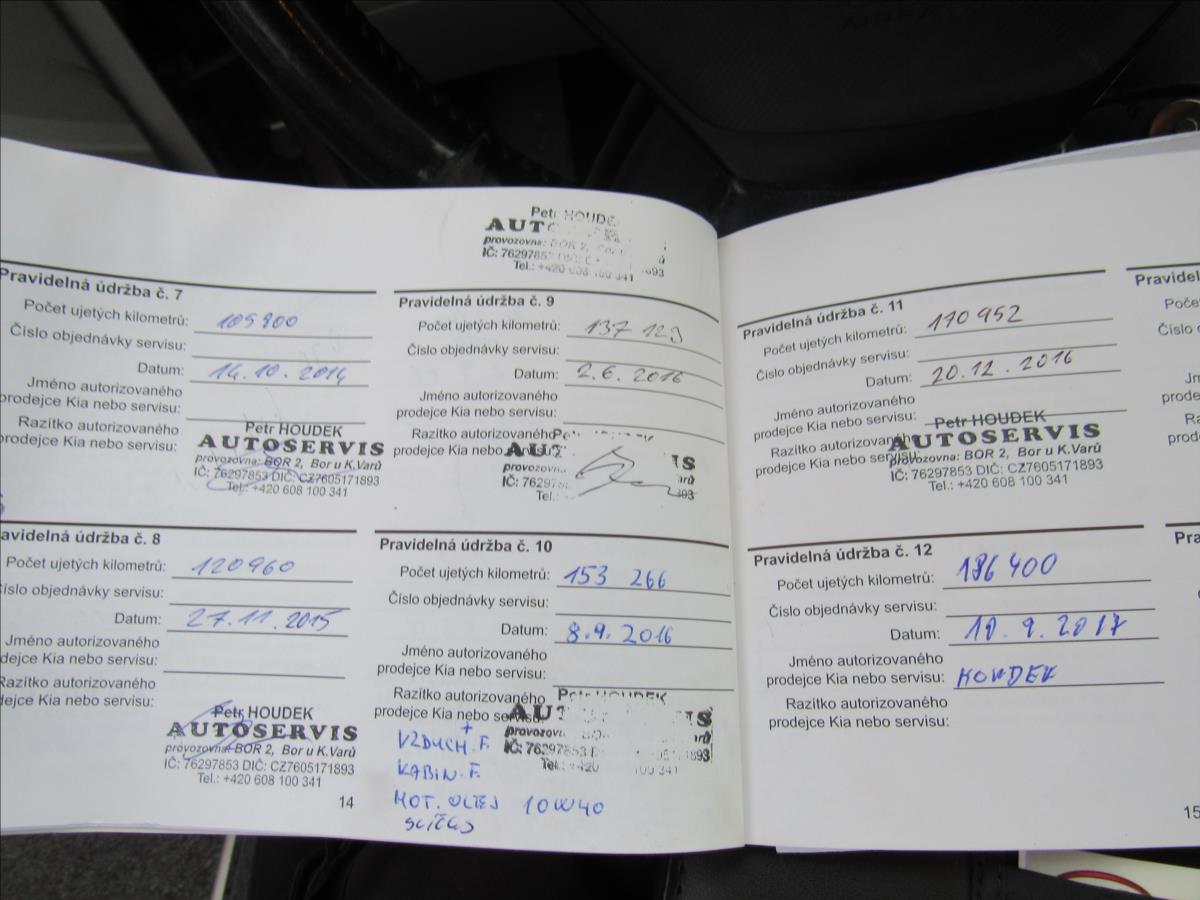 Petr HOUDEK
provozovna: BOR 2, Bor u
IČ: 7629785
Tel.: +420 608 100 341
Pravidelná údržba č. 7
Počet ujetých kilometrů: 105800
Číslo objednávky servisu:
Datum: 14.10.2014
Jméno autorizovaného
prodejce Kia nebo servisu:
Razítko autorizovaného
prodejce Kia nebo servisu:
Petr HOUDEK
AUTOSERVIS
provozovna: BOR 2, Bor u K.Varů
IČ: 76297853 DIČ: CZ7605171893
Tel.: +420 608 100 341
Pravidelná údržba č. 8
Počet ujetých kilometrů: 120960
Číslo objednávky servisu:
Datum: 27.11.2015
Jméno autorizovaného
dejce Kia nebo servisu:
Razítko autorizovaného
dejce Kia nebo servisu:
Petr HOUDEK
AUTOSERVIS
provozovna: BOR 2, Bor u K.Varů
IČ: 76297853 DIČ: CZ7605171893
Tel.: +420 608 100 341
14
Pravidelná údržba č. 9
Počet ujetých kilometrů: 137 123
Číslo objednávky servisu:
Datum: 2.6.2016
Jméno autorizovaného
prodejce Kia nebo servisu:
Razítko autorizovaného
prodejce Kia nebo servisu:
Pravidelná údržba č. 10
Počet ujetých kilometrů: 153 266
Číslo objednávky servisu:
Datum: 8.9.2016
Jméno autorizovaného
prodejce Kia nebo servisu:
Razítko autorizovaného
prodejce Kia nebo servisu:
Petr HOUDEK
IČ: 76297853
+
VZDUCH.F.
KABIN.F.
MOT. OLEJ 10W40
Pravidelná údržba č. 11
Počet ujetých kilometrů: 170 952
Číslo objednávky servisu:
Datum: 20.12.2016
Jméno autorizovaného
prodejce Kia nebo servisu:
Razítko autorizovaného
prodejce Kia nebo servisu:
Petr HOUDEK
AUTOSERVIS
provozovna: BOR 2, Bor u K.Varů
IČ: 76297853 DIČ: CZ7605171893
Tel.: +420 608 100 341
Pravidelná údržba č. 12
Počet ujetých kilometrů: 186 400
Číslo objednávky servisu:
Datum: 10.9.2017
Jméno autorizovaného
prodejce Kia nebo servisu: HOUDEK
Razítko autorizovaného
prodejce Kia nebo servisu:
15